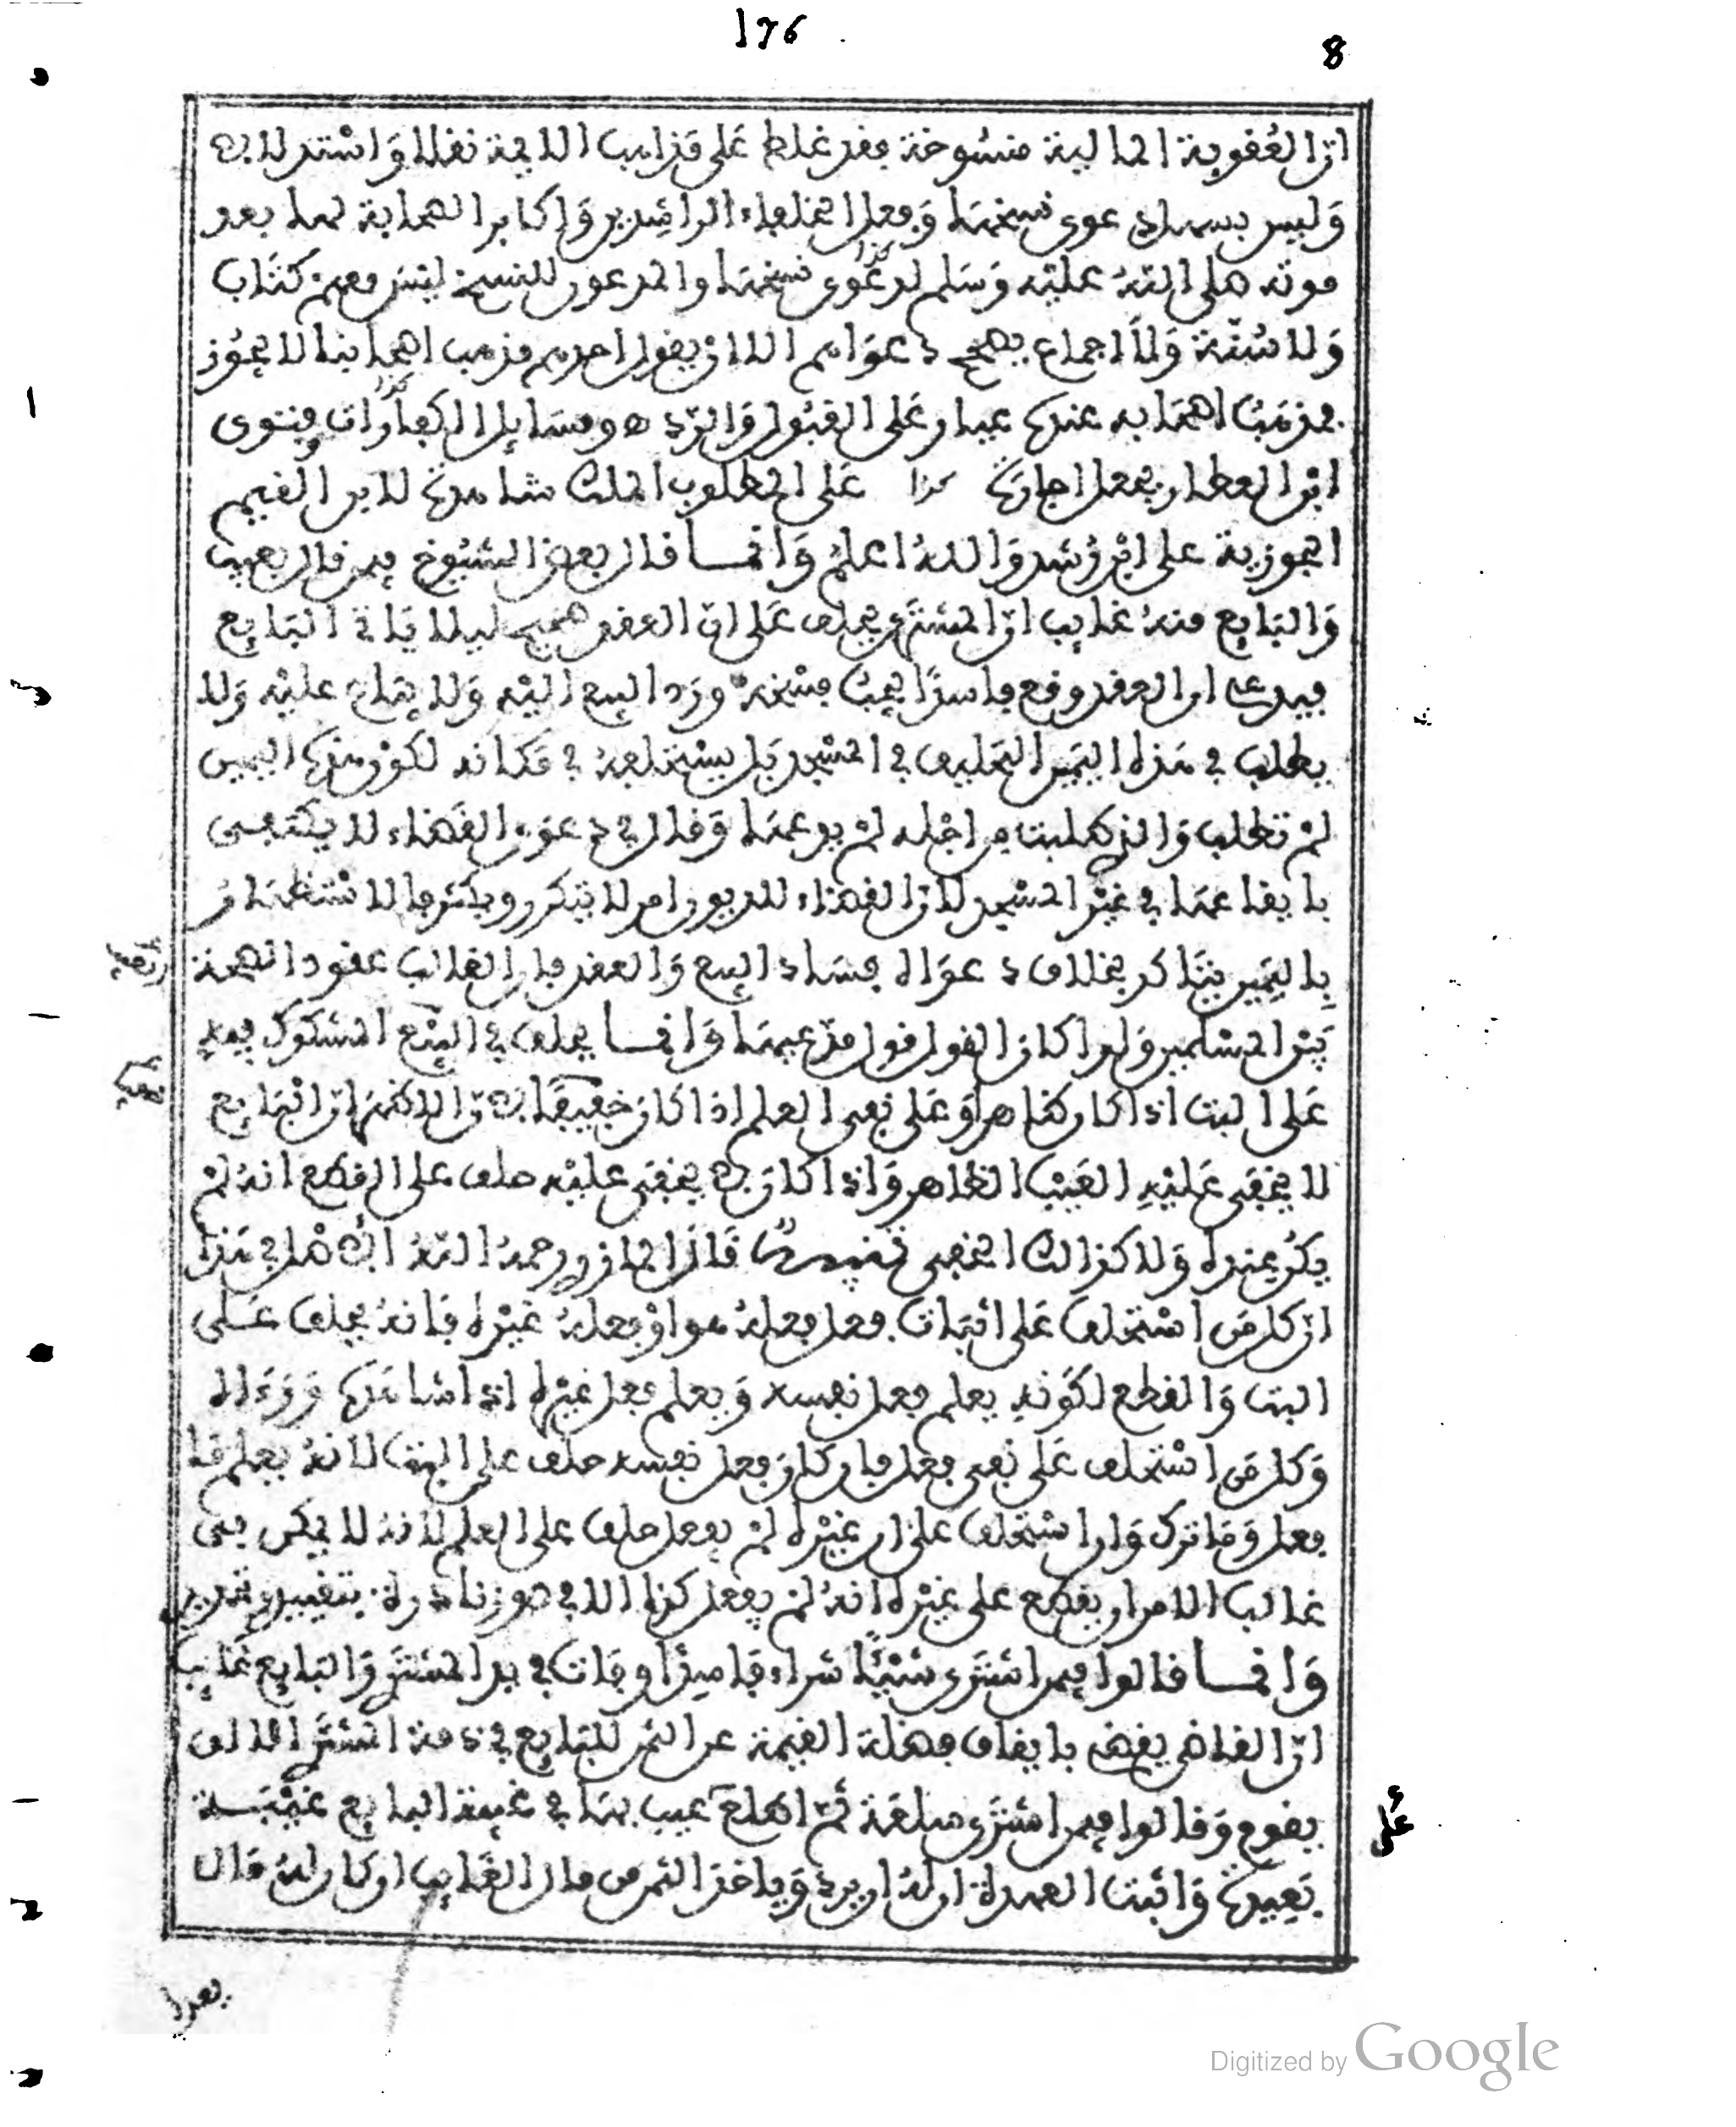 176
8
ان العقوبة المالية منسوخة فقد غلط على مذاهب الايمة نقلا واستدلالا
وليس بسهل دعوى نسخها وفعل الخلفاء الراشدين واكابر الصحابة لها بعد
موته صلى الله عليه وسلم لدعوى كذا نسخها والمدعون للنسخ ليس معهم كتاب
ولا سنة ولا اجماع يصحح دعواهم الا ان يقول احدهم مذهب اصحابنا لا يجوز
فمذهب اصحابه عندها عيار على القبول والرد هو ومسايل الكفارات كذا وفتوى
ابن العطار بفعل اجارة كذا على المطلوب الملك شاهدة لابن القيم
الجوزية على ابن رشد والله اعلم وانما قال بعض الشيوخ فيمن قال بعيب
والبايع منه غايب ان المشتري يحلف على ان العقد صحيح ليلا ياتي البايع
فيدعي ان العقد وقع فاسدا يجب فسخه ورد البيع اليه ولا يباع عليه ولا
يطلب في هذه اليمين التحليف في المسجد بل يستحلفه في مكانه لكون هذه اليمين
لم تطلب والذي طلبت من اجله لم يدعها وقال في دعوى القضاء لا يكتفى
بايقاعها في غير المسجد لان القضاء للديون امر لا يتكرر ويكثر فالاستظهار
باليمين يتاكد بخلاف دعواه فساد البيع والعقد فان الغالب عقود الصحة
بين المسلمين ولذا كان القول قول مدعيها وانما يحلف في البيع المشكوك فيه
على البت اذا كان ظاهرا وعلى نفي العلم اذا كان خفيفا لان الاظهر ان البايع
لا يخفى عليه العيب الظاهر واذا كان لا يخفى عليه حلف على القطع انه لم
يكن عنده ولا كذالك الخفي تنبيه قال المازري رحمه الله الاصل في هذا
ان كل من استحلف على اثبات فعل فعله هو او فعله غيره فانه يحلف على
البت والقطع لكونه يعلم فعل نفسه ويعلم فعل غيره اذا شاهدها ورءاه
وكل من استحلف على نفي فعل فان كان فعل نفسه حلف على البت لانه يعلم ما
فعل وما ترك وان استحلف على ان غيره لم يفعل حلف على العلم لانه لا يمكن في
غالب الامر ان يقطع على غيره انه لم يفعل كذا الا في صور نادرة بتقييد وتحديد
وانما قالوا فيمن اشترى شيئا شراء فاسدا وفات في يد المشتري والبايع غايب
ان القاضي يقضي بايقاف فضلة القيمة عن الثمن للبايع في ذمة المشتري المالف
يقوم وقالوا فيمن اشترى سلعة ثم اطلع عيب بها في غيبة البايع غيبة
بعيدة واثبت العهدة ان له ان يرد وياخذ الثمن من مال الغايب ان كان له مال
على
بعدا
Digitized by Google